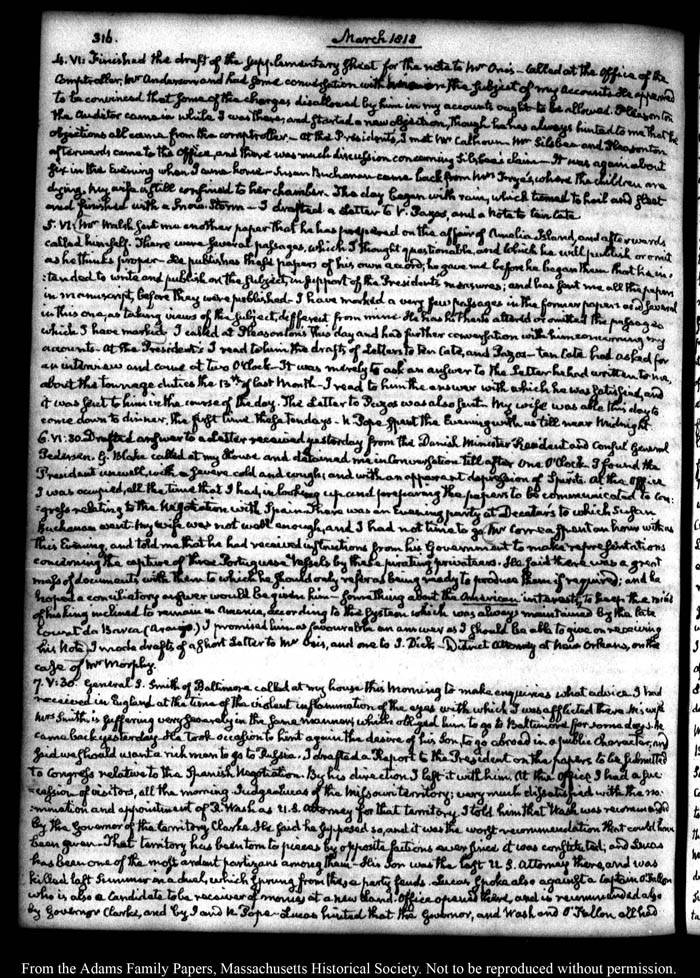 316.
March 1818
4. VI. Finished the draft of the supplementary sheet for the note to Mr Onis - Called at the Office of the
Comptroller, Mr Anderson and had some conversation with the subject of my Accounts. He appeared
to be convinced that some of the charges disallowed by him in my accounts ought to be allowed. Pleasonton
the Auditor came in while I was there; and started a new objection, though he has always hinted to me that the
objections all came from the comptroller - At the Presidents, I met Mr Calhoun. Mr Silsbee and Pleasonton
afterwards came to the Office, and there was much discussion concerning Silsbee's claim - It was again about
six in the Evening when I came home - Susan Buchanan came back from Mrs Frye's, where the children are
dying. My wife is still confined to her chamber. The day began with rain, which turned to hail and sleet
and finished with a Snow-Storm - I drafted a Letter to V. Pazos, and a Note to ten Cate
5. VI. Mr Walsh sent me another paper that he has prepared on the affair of Amelia Island, and afterwards
called himself. There were several passages, which I thought questionable, and which he will publish or omit
as he thinks proper. He publishes these papers of his own accord; he gave me before he began them that he in-
:tended to write and publish on the subject, in support of the President's measures; and has sent me all the papers
in manuscript, before they were published - I have marked a very few passages in the former papers and several
in this one, as taking views of the subject, different from mine. He has hitherto altered or omitted the passages
which I have marked. I called at Pleasonton's this day and had further conversation with him concerning my
accounts - At the President's I read to him the drafts of Letters to ten Cate, and Pazos - ten Cate had asked for
an interview and came at two O'Clock - It was merely to ask an answer to the Letter he had written to me,
about the tonnage duties the 13th of last Month - I read to him the answer with which he was satisfied, and
it was sent to him in the course of the day. The Letter to Pazos was also sent. My wife was able this day to
come down to dinner, the first time these ten days - N Pope spent the Evening with us till near Midnight.
6. VI:30. Drafted answer to a Letter received yesterday from the Danish Minister Resident and Consul General
Pedersen. G. Blake called at my house and detained me in Conversation till after One O'Clock. I found the
President unwell, with a severe cold and cough; and with an apparent depression of Spirits. At the Office
I was occupied, all the time that I had, in looking up and preparing the papers to be communicated to Con:
:gress relating to the Negotiation with Spain. There was an Evening party at Decatur's to which Susan
Buchanan went. My wife was not well enough, and I had not time to go. Mr Correa spent an hour with us
this Evening, and told me that he had received instructions from his Government to make representations
concerning the capture of three Portuguese Vessels by these pirating privateers. He said there was a great
mass of documents with them to which he should only refer as being ready to produce them if required; and he
hoped a conciliatory answer would be given him - Something about the American interests, to keep the mind
of his king inclined to remain in America, according to the System which was always maintained by the late
Count da Barca (Araujo.) I promised him as favourable an answer as I should be able to give on receiving
his Note. I made drafts of a short Letter to Mr Onis, and one to J. Dick - District Attorney at New Orleans, on the
case of Mr Morphy.
7. V:30. General S. Smith of Baltimore called at my house this Morning to make enquiries what advice I had
received in England, at the time of the violent inflammation of the eyes with which I was afflicted there. His wife
Mrs Smith, is suffering very severely in the same manner, which obliged him to go to Baltimore for some days. He
came back yesterday. He took occasion to hint again the desire of his Son, to go abroad in a public character; and
said we should want a rich man to go to Russia. I drafted a Report to the President on the papers to be submitted
to Congress relative to the Spanish Negotiation. By his direction I left it with him. At the Office I had a suc:
:cession of visitors, all the morning. Judge Lucas of the Missouri territory; very much dissatisfied with the no:
:mination and appointment of R. Wash as U.S. Attorney for that territory. I told him that Wash was recommended
by the Governor of the territory, Clarke. He said he supposed so, and it was the worst recommendation that could have
been given. That territory has been torn to pieces by opposite factions ever since it was constituted; and Lucas
has been one of the most ardent partizans among them - His Son was the last U.S. Attorney there, and was
killed last Summer in a duel, which sprung from these party feuds. Lucas spoke also against a Captain O'Fallon
who is also a Candidate to be receiver of monies at a new Land-Office opened there, and is recommended also
by Governor Clarke, and by J and N Pope - Lucas hinted that the Governor, and Wash and O'Fallon all had
From the Adams Family Papers, Massachusetts Historical Society. Not to be reproduced without permission.